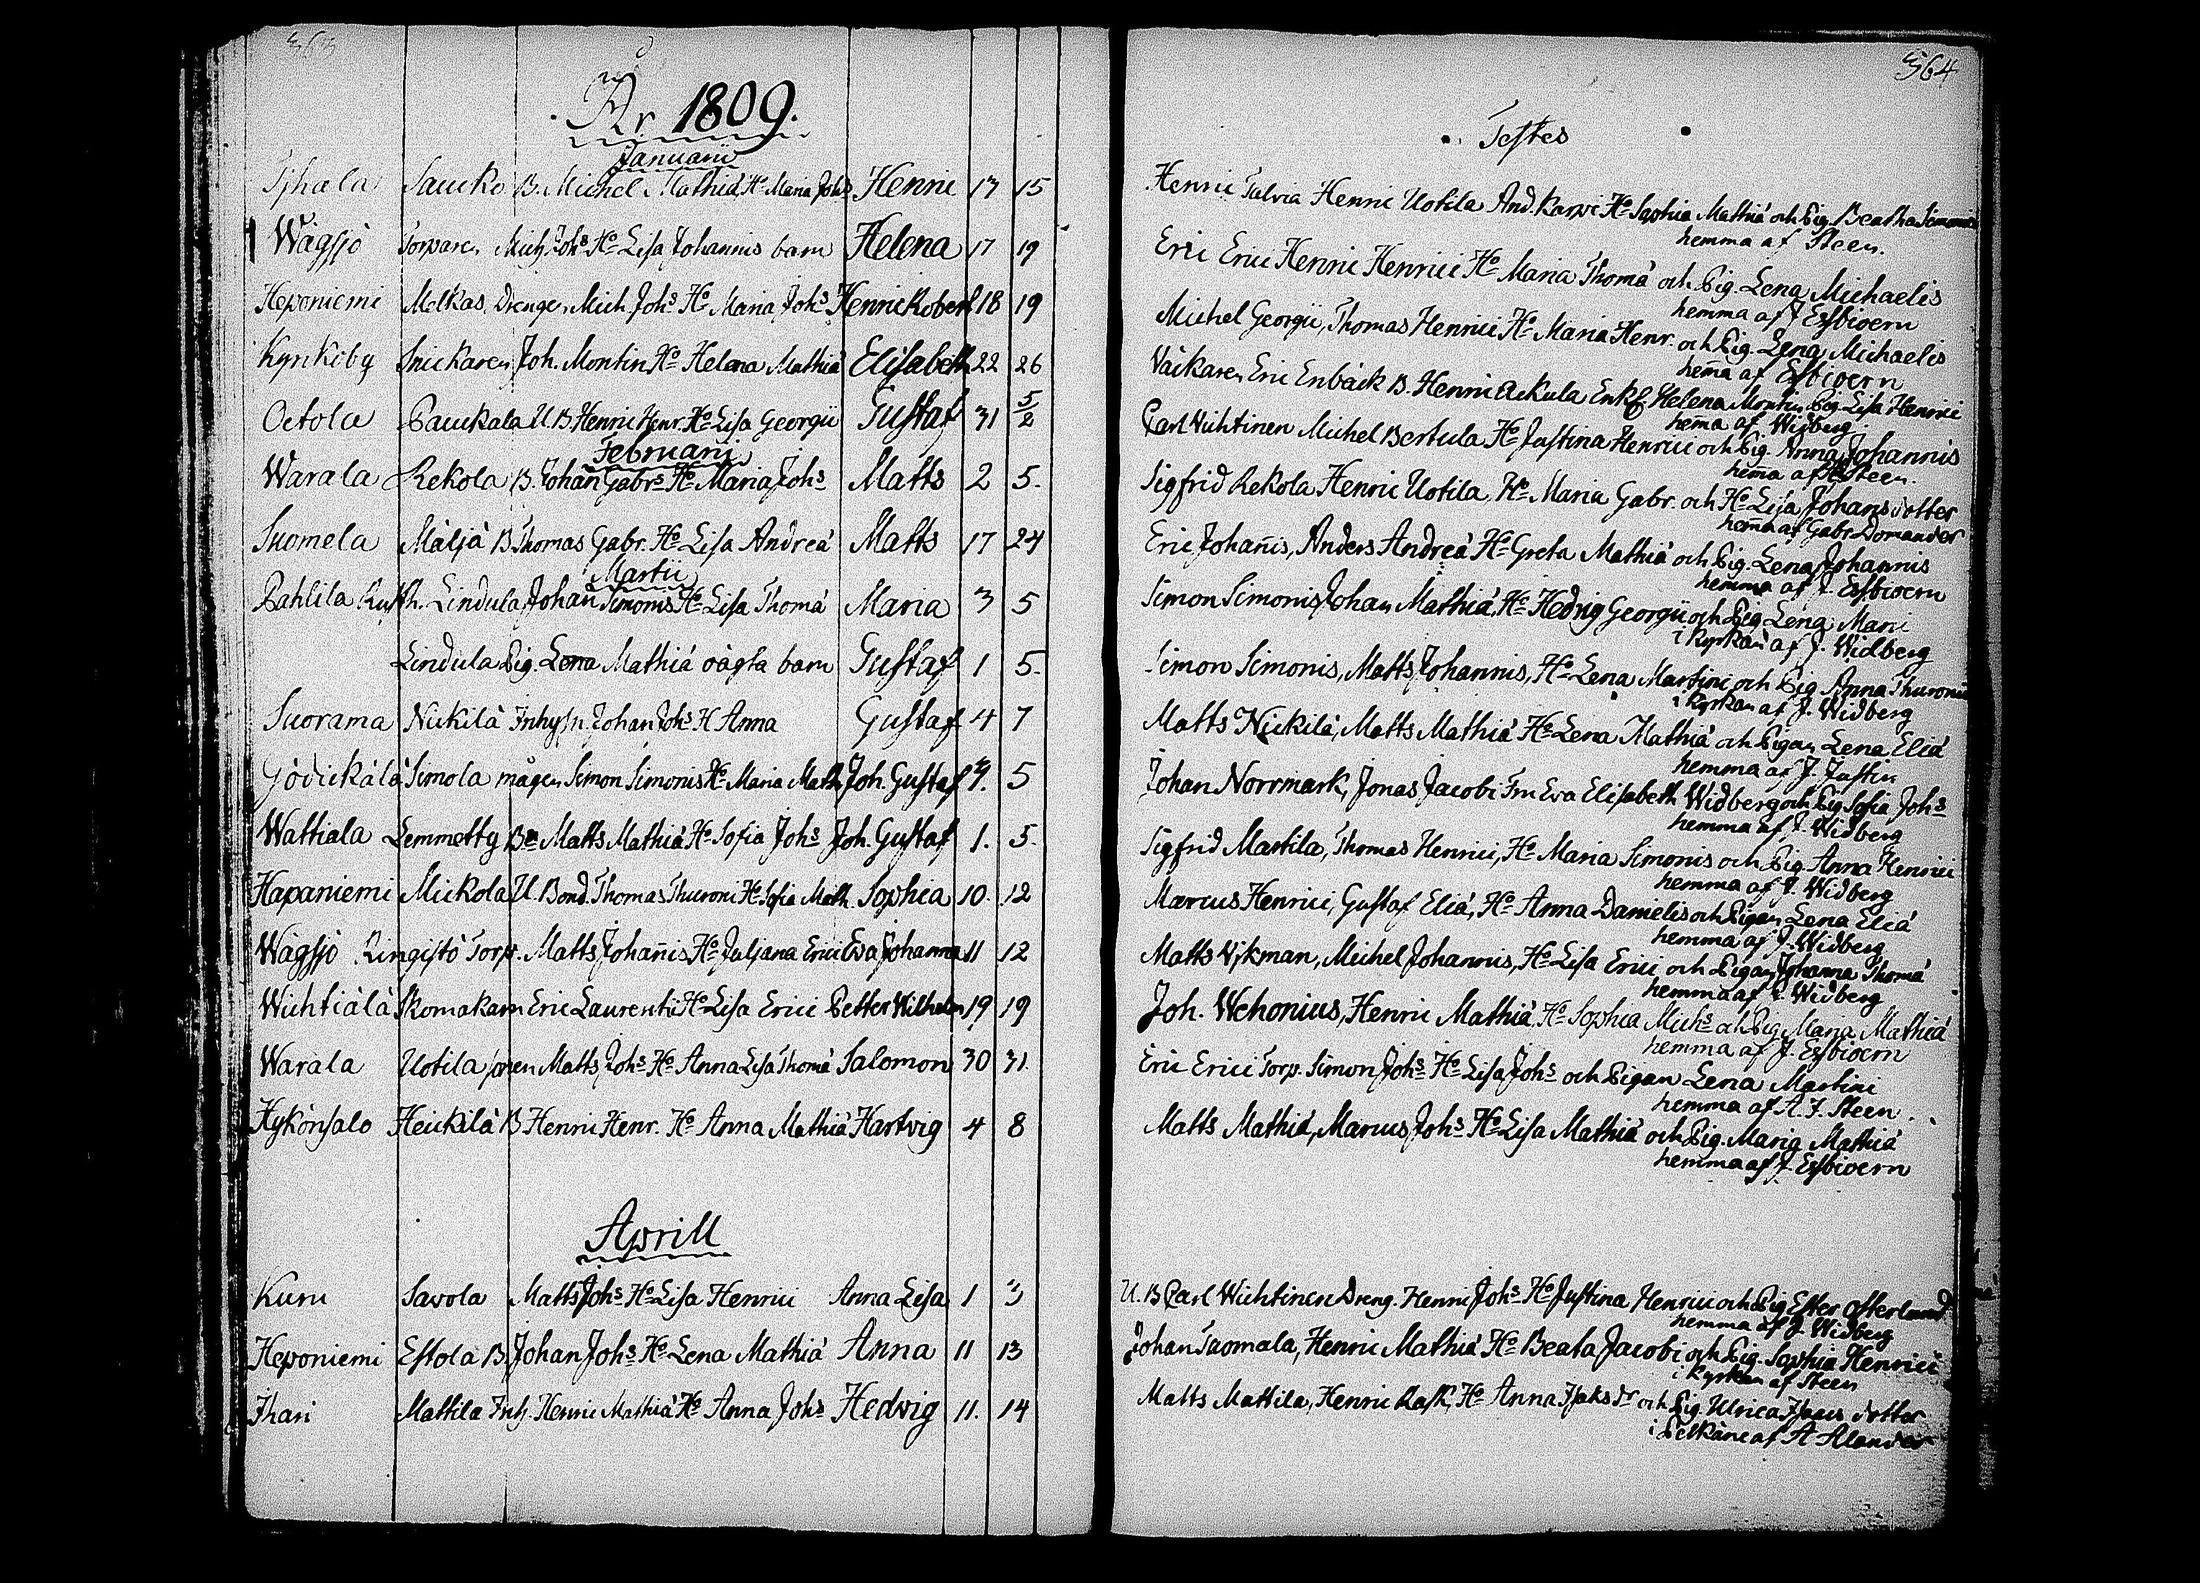 363
År 1809.
Januarii
Saucko B. Michel Mathiæ Hº Maria Johs Henric 13 15
Wågsjö Torparen Mich. Johs Hº Lisa Johannis barn Helena 17 19
Heponiemi Melkas Drengen Mich. Johs Hº Maria Johs Henric Robert 18 19
Kyrkiby Snickaren Joh. Montin Hº Helena Mathiæ Elisabeth 22 26
Octola Pauckala U. B. Henric Henr. Hº Lisa Georgii Gustaf 31 5/2
Februarii
Warala Rekola B. Johan Gabrs Hº Maria Johs Matts 2 5.
Suomela Mäljä B Thomas Gabr. Hº Lisa Andreä Matts 17 24
Martii
Pahlila Rusth. Lindula Johan Simonis Hº Lisa Thomä Maria 3 5
Lindula Pig. Lena Mathiä oägta barn Gustaf 1 5.
Suorama Nickilä Inhysn Johan Johs H Anna Gustaf 4 7
Gödickälä Simola mågen Simon Simonis Hº Maria Math. Joh. Gustaf 4. 5
Wattiala Lemmetty Bn Matts Mathiä Hº Sofia Johs Joh. Gustaf 1. 5.
Hapaniemi Mickola U. Bond. Thomas Thuroni Hº Sofia Math. Sophia 10. 12
Wågsjö Ringistö Torp. Matts Johañis Hº Juljana Erici Eva Johanna 11 12
Wichtiälä Skomakarn Eric Laurentii Hº Lisa Erici Petter Wilhelm 19 19
Warala Uotila sonen Matts Johs Hº Anna Lisa Thomä Salomon 30 31.
Hykönsalo Heickilä B Henric Henr. Hº Anna Mathiä Hartvig 4 8
Aprill
Kuru Savola Matts Johs Hº Lisa Henrici Anna Lisa 1 3
Heponiemi Estola B. Johan Johs Hº Lena Mathiä Anna 11 13
Ihari Mattila Inh. Henric Mathiä Hº Anna Johs Hedvig 11. 14
364
Testes
Henric Talvia Henric Uotila And. Karpe Hº Sophia Mathiä och Pig. Beatha Simonis
hemma af Steen.
Eric Erici Henric Henrici Hº Maria Thomä och Pig. Lena Michaelis
hemma af J Essbioern
Michel Georgii, Thomas Henrici Hº Maria Henr. och Pig. Lena Michaelis
hem̃a af Essbioern
Väckaren Eric Enbäck B. Henric Ackula Enkf. Helena Montin Pig. Lisa Henrici
hem̃a af Widberg.
Carl Wichtinen Michel Bertula Hº Justina Henrici och Pig. Anna Johannis
hem̃a af Steen.
Sigfrid Rekola Henric Uotila, Hº Maria Gabr. och Hº Lisa Johans dotter
hem̃a af Gabr. Domander
Eric Johañis, Anders Andreä Hº Greta Mathiä och Pig. Lena Johannis
hemma af J. Essbioern
Simon Simonis Johan Mathiä, Hº Hedvig Georgii och Pig. Lena Mari
i Kyrkan af J. Widberg
Simon Simonis, Matts Johannis, Hº Lena Martini och Pig. Anna Thuronis
i Kyrkan af J. Widberg
Matts Nickilä, Matts Mathiä Hº Lena Mathiä och Pigan Lena Eliä
hemma af J. Justin
Johan Norrmark, Jonas Jacobi Fru Eva Elisabeth Widberg och Pig. Sofia Johs
hemma af J. Widberg
Sigfrid Martila, Thomas Henrici, Hº Maria Simonis och Pig. Anna Henrici
hemma af J. Widberg
Marcus Henrici, Gustaf Eliä, Hº Anna Danielis och Pigan Lena Eliä
hemma af J. Widberg
Matts Vikman, Michel Johannis, Hº Lisa Erici och Pigan Johanna Thomä
hemma af J. Widberg
Joh. Wehonius, Henric Mathiä, Hº Sophia Michs och Pig. Maria Mathiä
hemma af J. Essbioern
Eric Erici Torp. Simon Johs Hº Lisa Johs och Pigan Lena Martini
hemma af A. J. Steen
Matts Mathiä, Marcus Johs Hº Lisa Mathiä och Pig. Maria Mathiä
hemma af J. Essbioern
U. B Carl Wichtinen Dreng. Henric Johs Hº Justina Henrici och Pig Ester Osterlund
hemma af J. Widberg
Johan Tuomala, Henric Mathiä Hº Beata Jacobi och Pig. Sophia Henrici
i Kyrkan af Steen
Matts Mattila, Henric Rask, Hº Anna Isaks dr och Pig. Ulrica Isacs dotter
i Pelkäne af A Alander